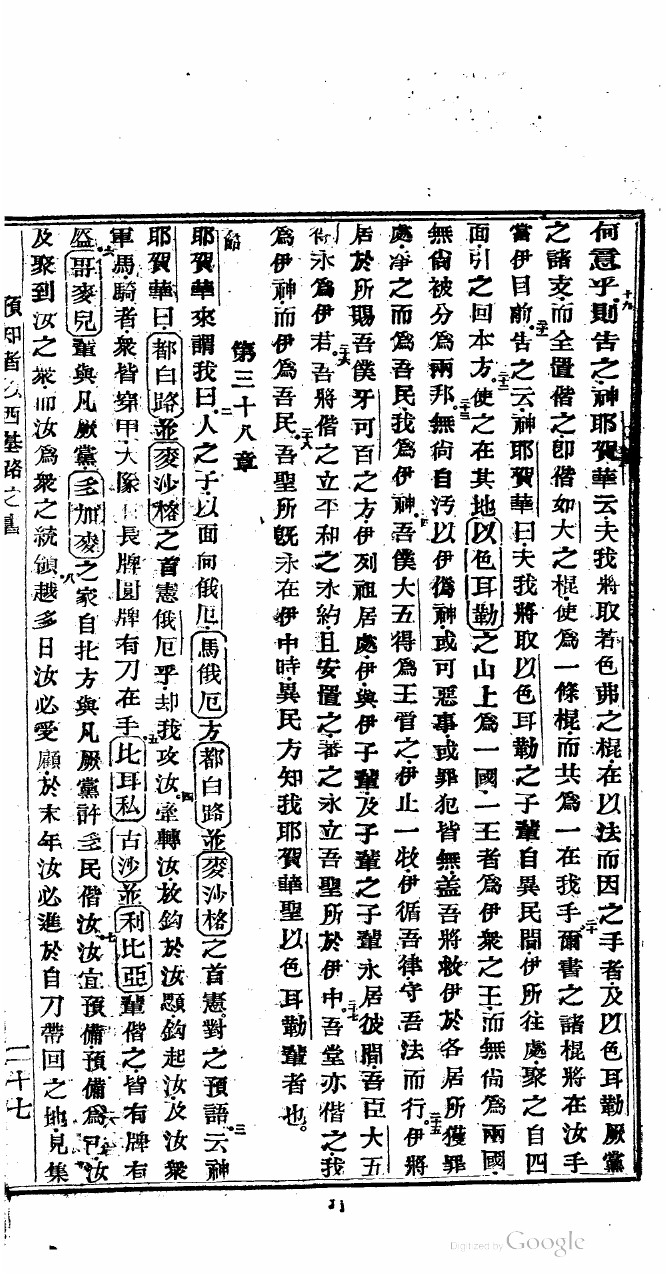 何意乎則告之神耶賀華云夫我將取若色弗之棍在以法而因之手者及以色耳勒厥黨
之諸支而全置偕之即偕如大之棍使為一條棍而共為一在我手爾書之諸棍將在汝手
當伊目前告之云神耶賀華曰夫我將取以色耳勒之子輩自異民間伊所往處聚之自四
面引之回本方使之在其地以色耳勒之山上為一國一王者為伊衆之王而無尙為兩國
無尙被分為兩邦無尙自汚以伊偽神或可惡事或罪犯皆無盖吾將救伊於各居所獲罪
處凈之而為吾民我為伊神吾僕大五得為王管之伊止一牧伊循吾律守吾法而行伊將
居於所賜吾僕牙可百之方伊列祖居處伊與伊子輩及子輩之子輩永居彼間吾臣大五
得永為伊君吾將偕之立平和之永約且安置之蕃之永立吾聖所於伊中吾堂亦偕之我
為伊神而伊為吾民吾聖所旣永在伊中時異民方知我耶賀華聖以色耳勒輩者也
第三十八章
耶賀華來謂我曰人之子以面向俄厄馬俄厄方都白路並麥沙格之首憲對之預語云神
耶賀華曰都白路並麥沙格之首憲俄厄乎却我攻汝牽轉汝放鈎於汝顋鈎起汝及汝衆
軍馬騎者衆皆穿甲大隊長牌圓牌有刀在手比耳私古沙並利比亞輩偕之皆有牌有
盔哥麥兒輩與凡厥黨多加麥之家自北方與凡厥黨許多民偕汝汝宜預備預備為汝
及聚到汝之衆而汝為衆之統領越多日汝必受顧於末年汝必進於自刀帶回之地見集
預知者以西基路之書
二十七
11
Digitized by Google